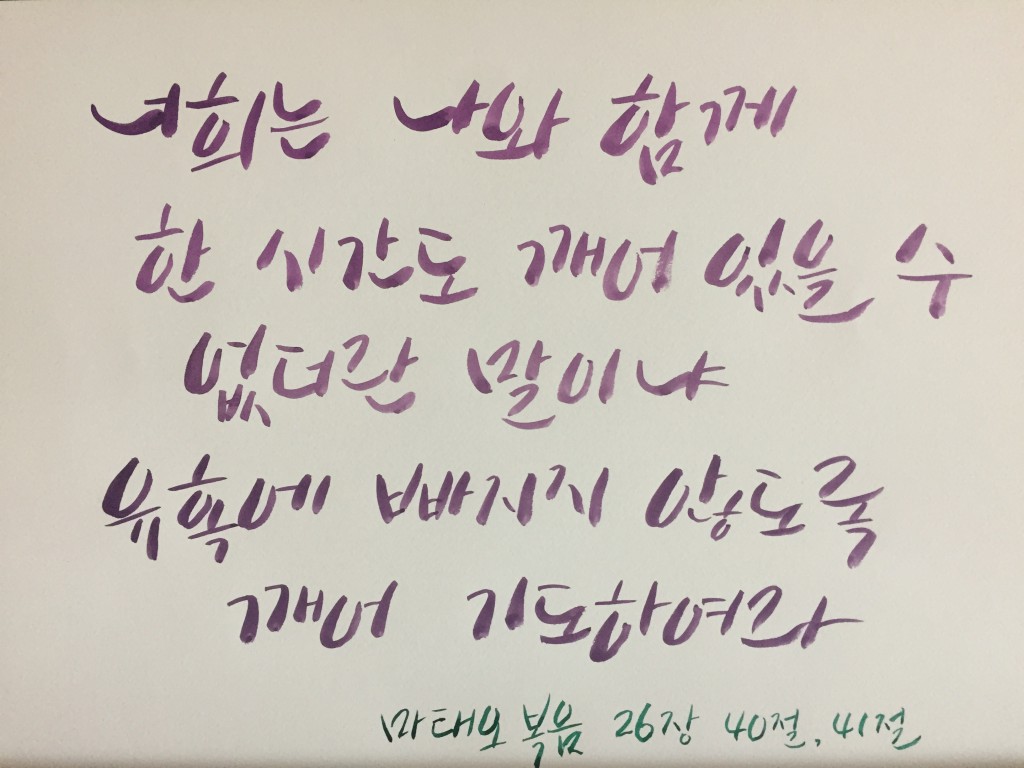 너희는 나와 함께
한 시간도 깨어 있을 수
없더란 말이냐
유혹에 빠지지 않도록
깨어 기도하여라
마태오 복음 26장 40절, 41절